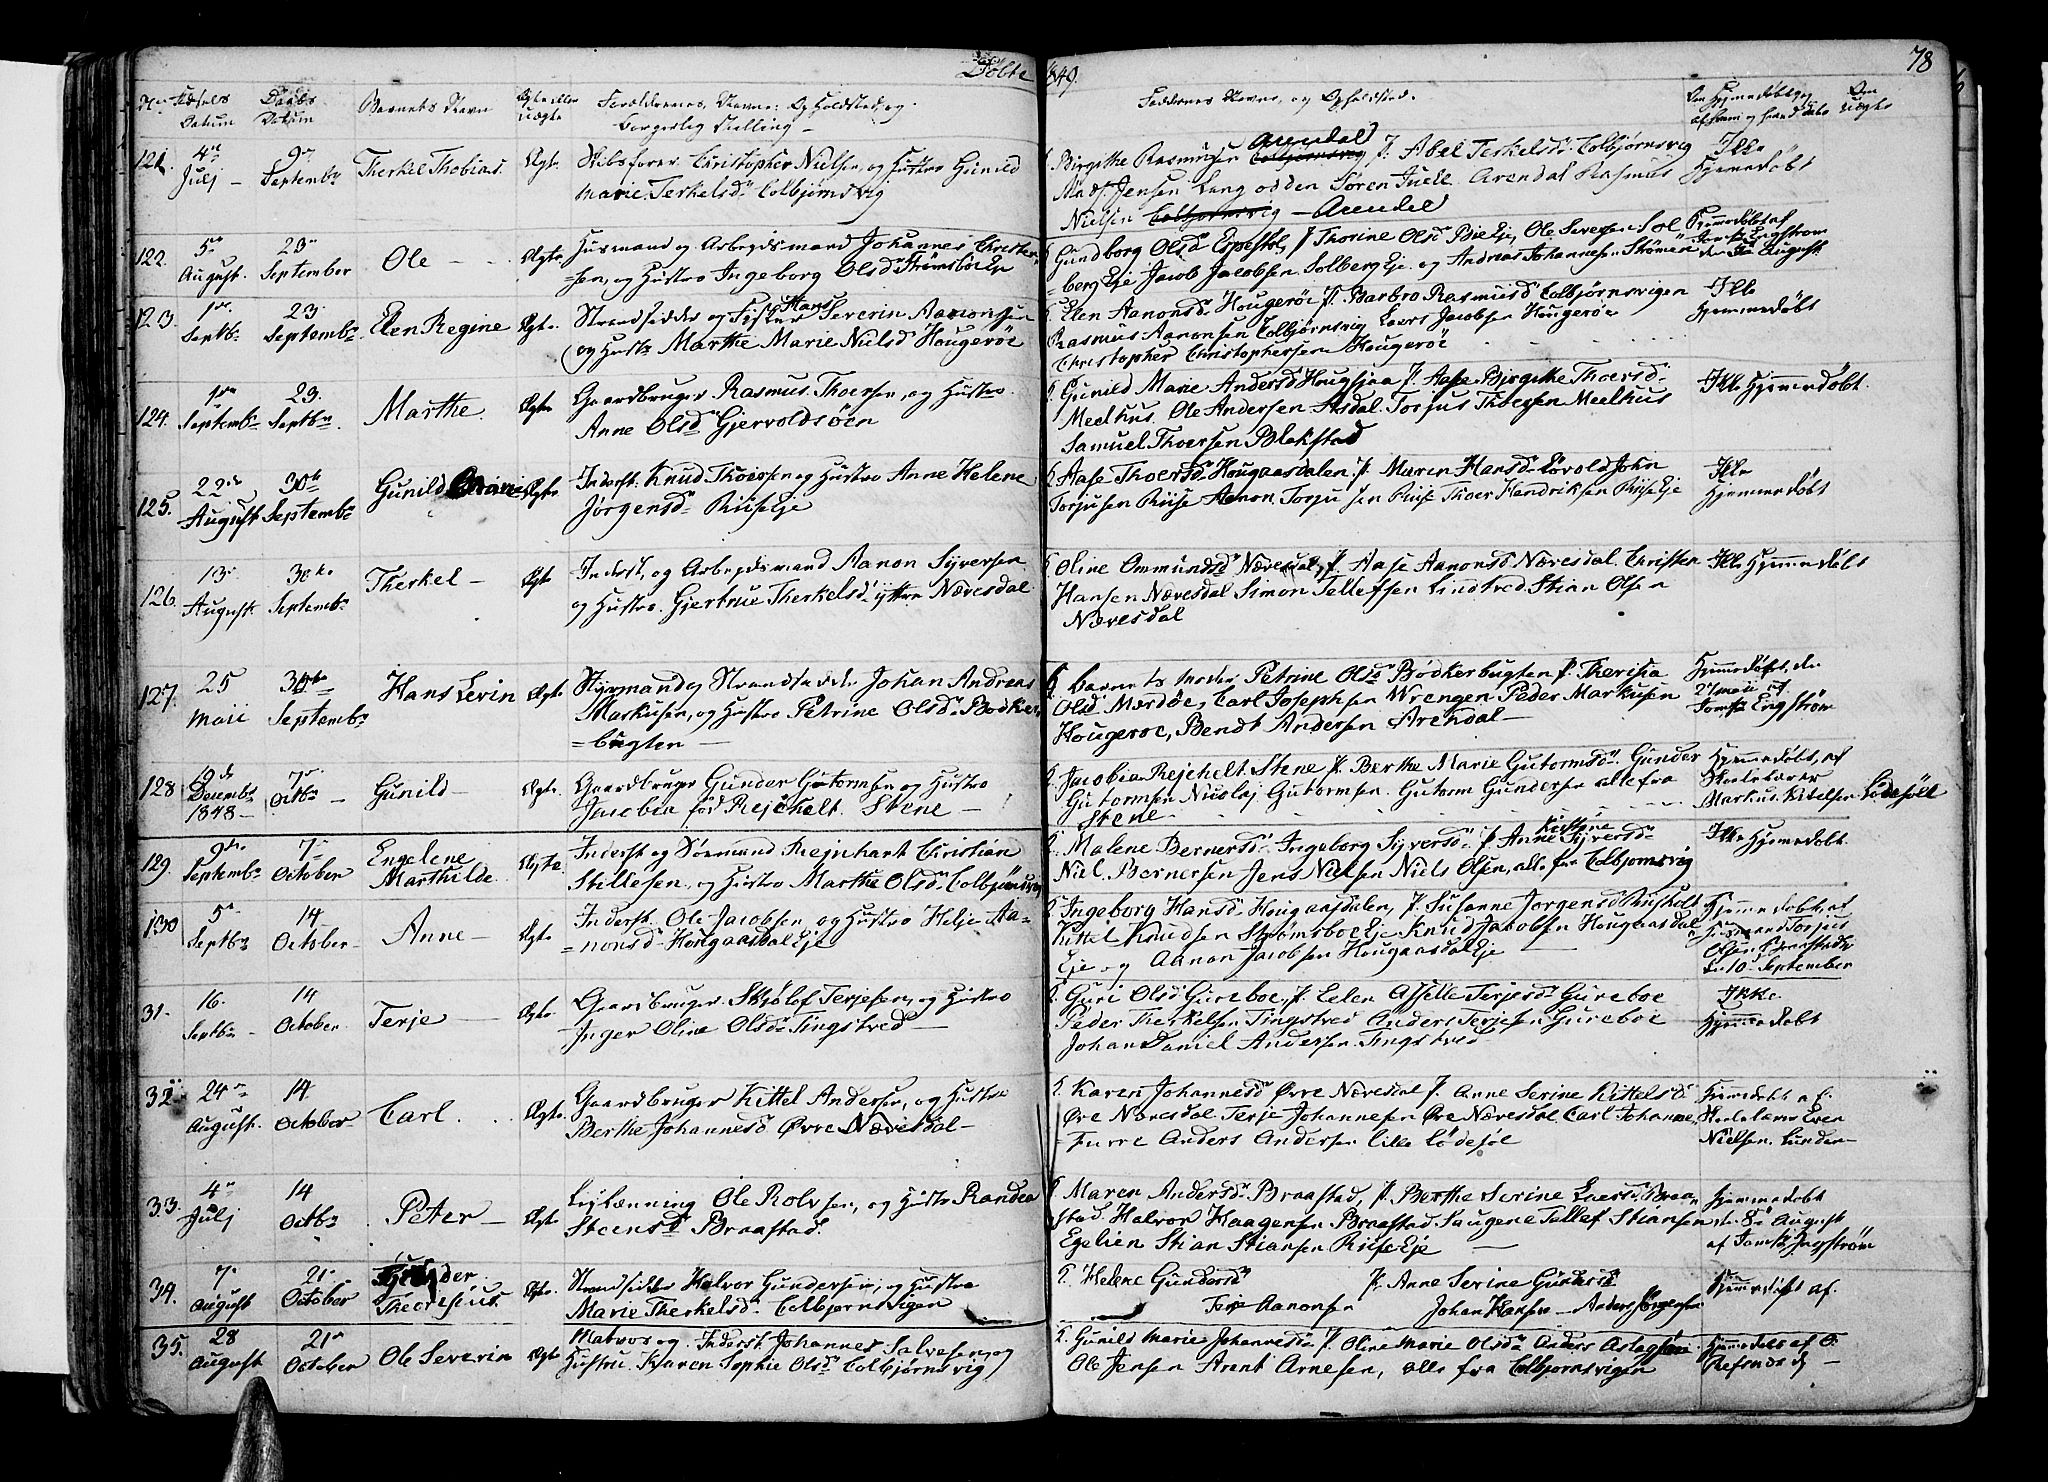 Döbte 1849.
78
No
Fødsels Datum
Daabs Datum
Barnets Navn
Ægte eller Uægte
Forældrenes, Navne: Opholdsted, og borgerlig Stilling
Faddernes Navne, og Opholdsted.
Om Hjemmedøbt
121.
4de Julj
9de Septembr
Therkel Thobias
Ægte
Skibsfører Christopher Nielsen, og Hustro Gunild
Marie Terkelsd Colbjørnsvig
Birgithe Rasmusen Arendal J. Abel Terkelsd. Colbjørnsvig
Mads Jensen Langodden Søren Juell Arendal Rasmus
Nielsen Colbjørnsvig - Arendal
Ikke Hjemmedöbt
122.
5te August.
23de September
Ole
Ægte
Husmand og Arbejdsmand Johannes Christen
=sen, og Hustro Ingeborg Olsd Strømsböe Eje
Gundborg Olsd Espestøl, J. Thorine Olsd Bie Eje, Ole Seversen Sol
=berg Eje Jacob Jacobsen Solberg Eje og Andreas Johannesen Strömen
Hjemmedöbt af Jomfr Engström August
123.
1ste Septb
23 Septembr
Elen Regine
Ægte
Strandsidder og Fisker Hans Severin Aanonsen
og Hustr Marthe Marie Nielsd Hougeröe
Elen Aanonsd Hougeröe J. Barbro Rasmusd Colbjørnsvigen
Rasmus Aanonsen Colbjørnsvig Laers Jacobsen Hougeröe
Christopher Christophersen Hougeröe
Ikke Hjemmedöbt
124.
1ste Septembr
23. Septbr.
Marthe.
Ægte
Gaardbruger Rasmus Thoersen, og Hustro
Anne Olsd Gjervoldsöen
Gunild Marie Andersd Hougsjaa J. Aase Birgithe Thoersd
Meelhus Ole Andersen Asdal. Torjus Thoersen Meelhus
Samuel Thoersen Blakstad
Ikke Hjemmedöbt.
125.
22de August
30te Septembr
Gunild Marie
Ægte
Inderst. Knud Thoersen og Hustro Anne Helene
Jörgensd Riiseeje
Aase Thoersd Hougaasdalen, J. Maren Hansd Løvold John
Torjusen Riise Aanon Torjusen Riise Thoer Hendriksen Riise Eje
Ikke Hjemmedöbt
126.
13de August
30te Septembr
Therkel -
Ægte
Inderst, og Arbejdsmand Aanon Syversen
og Hustro. Gjertrue Therkelsd yttre Næresdal
Oline Ommundsd Næresdal, J. Aase Aanonsd Næresdal Christen
Hansen Næresdal Simon Tellefsen Lindtved Stian Olsen
Næresdal
Ikke Hjemmedöbt
127.
25 Maii
30te Septembr
Hans Levin
Ægte
Styrmand og Strandsidder Johan Andreas
Markusen, og Hustro Petrine Olsd Bödker
=bugten -
Barnets Moder Petrine Olsd Bödkerbugten J. Therisia
Olsd Mærdöe, Carl Josephsen Wrengen Peder Markusen
Hougeröe, Bendt Andersen Arendal -
Hjemmedöbt, den 27 Maii af Jomfr Engström
128
19de Decembr 1848 -
7de Octbr -
Gunild -
Ægte.
Gaardbruger Gunder Gutormsen og Hustro
Jacobia fød Rejchelt. Stene -
Jacobia Rejchelt Stene J. Berthe Marie Gutormsd. Gunder
Gutormsen Nicolaj Gutormsen. Gutorm Gundersen alle fra
Stene
Hjemmedöbt, af Skolelærer Markus Kitelsen Lödesöll
129.
9de Septembr
7de October
Engelene Marthilde.
Ægte.
Inderst og Sömand Rejnhart Christian
Stillesen, og Hustro Marthe Olsd Colbjörnsvig
Malene Bernersd Ingeborg Syversd J. Anne Kirstine Syversd
Niel. Bernersen Jens Nielsen Niels Olsen, alle fra Colbjornsvig
Ikke Hjemmedöbt.
130
5te Septbr
14 October
Anne -
Ægte
Inderst. Ole Jacobsen, og Hustro Helje Aa=
=nonsd Hougaasdal Eje
Ingeborg Hansd Hougaasdalen, J. Susanne Jorgensd Rusholt
Kittel Knudsen Strømsboe Eje Knud Jacobsen Hougaasdal
Eje og Aanon Jacobsen Hougaasdal Eje
Hjemmedöbt af Husmand Torjus Olsen den 10 September
31.
16. Septbr -
14 October
Terje
Ægte
Gaardbruger Skjølof Terjesen, og Hustro
Inger Oline Olsd Tingstved -
Guri Olsd Gureboe, J. Elen Asselle Terjesd Gureboe
Peder Therkelsen Tingstved Anders Terjesen Gureboe
Johan Daniel Andersen Tingstved
Ikke. Hjemmedöbt
32
24de August.
14 October
Carl.
Ægte.
Gaardbruger Kittel Andersen, og Hustro
Berthe Johannesd Øvre Næresdal -
Karen Johannesd Øvre Næresdal J. Anne Serine Kittelsd
Øvre Næresdal Terje Johannesen Øvre Næresdal Carl Johannes
Furre Anders Andersen lille Lödesöl
Hjemmedöbt af Skolelærer Even Nielsen. Lunden -
33.
4de Julj
14 Octbr
Peter -
Ægte
Lejlænning Ole Rolvsen, og Hustro Randea
Steensd Braastad.
Maren Andersd Braastad, J. Berthe Serine Laersd Braa=
stad. Halvor Haagensen Braastad Saugene Tellef Stiansen
Egelien Stian Stiansen Riise Eje
Hjemmedöbt den 8de August af Jomfr Engström
34.
7de August
21de October
Gunder Theoresius.
Ægte.
Strandsidder Halvor Gundersen, og Hustro
Marie Therkelsd. Colbjornsvigen
Helene Gundersd J. Anne Serine Gundersd
Terje Aanonsen Johan Hansen - Anders Jörgensen
Hjemmedöbt af.
35.
28 August
21de October
Ole Severin
Ægte
Matros og Inderst Johannes Salvesen, og
Hustru. Karen Sophie Olsd Colbjørnsvig
Gunild Marie Johannesd J. Oline Marie Olsd Anders Aslagsen
Ole Jensen Arent Arnesen, alle fra Colbjornsvigen
Hjemmedöbt af O. Refsnes